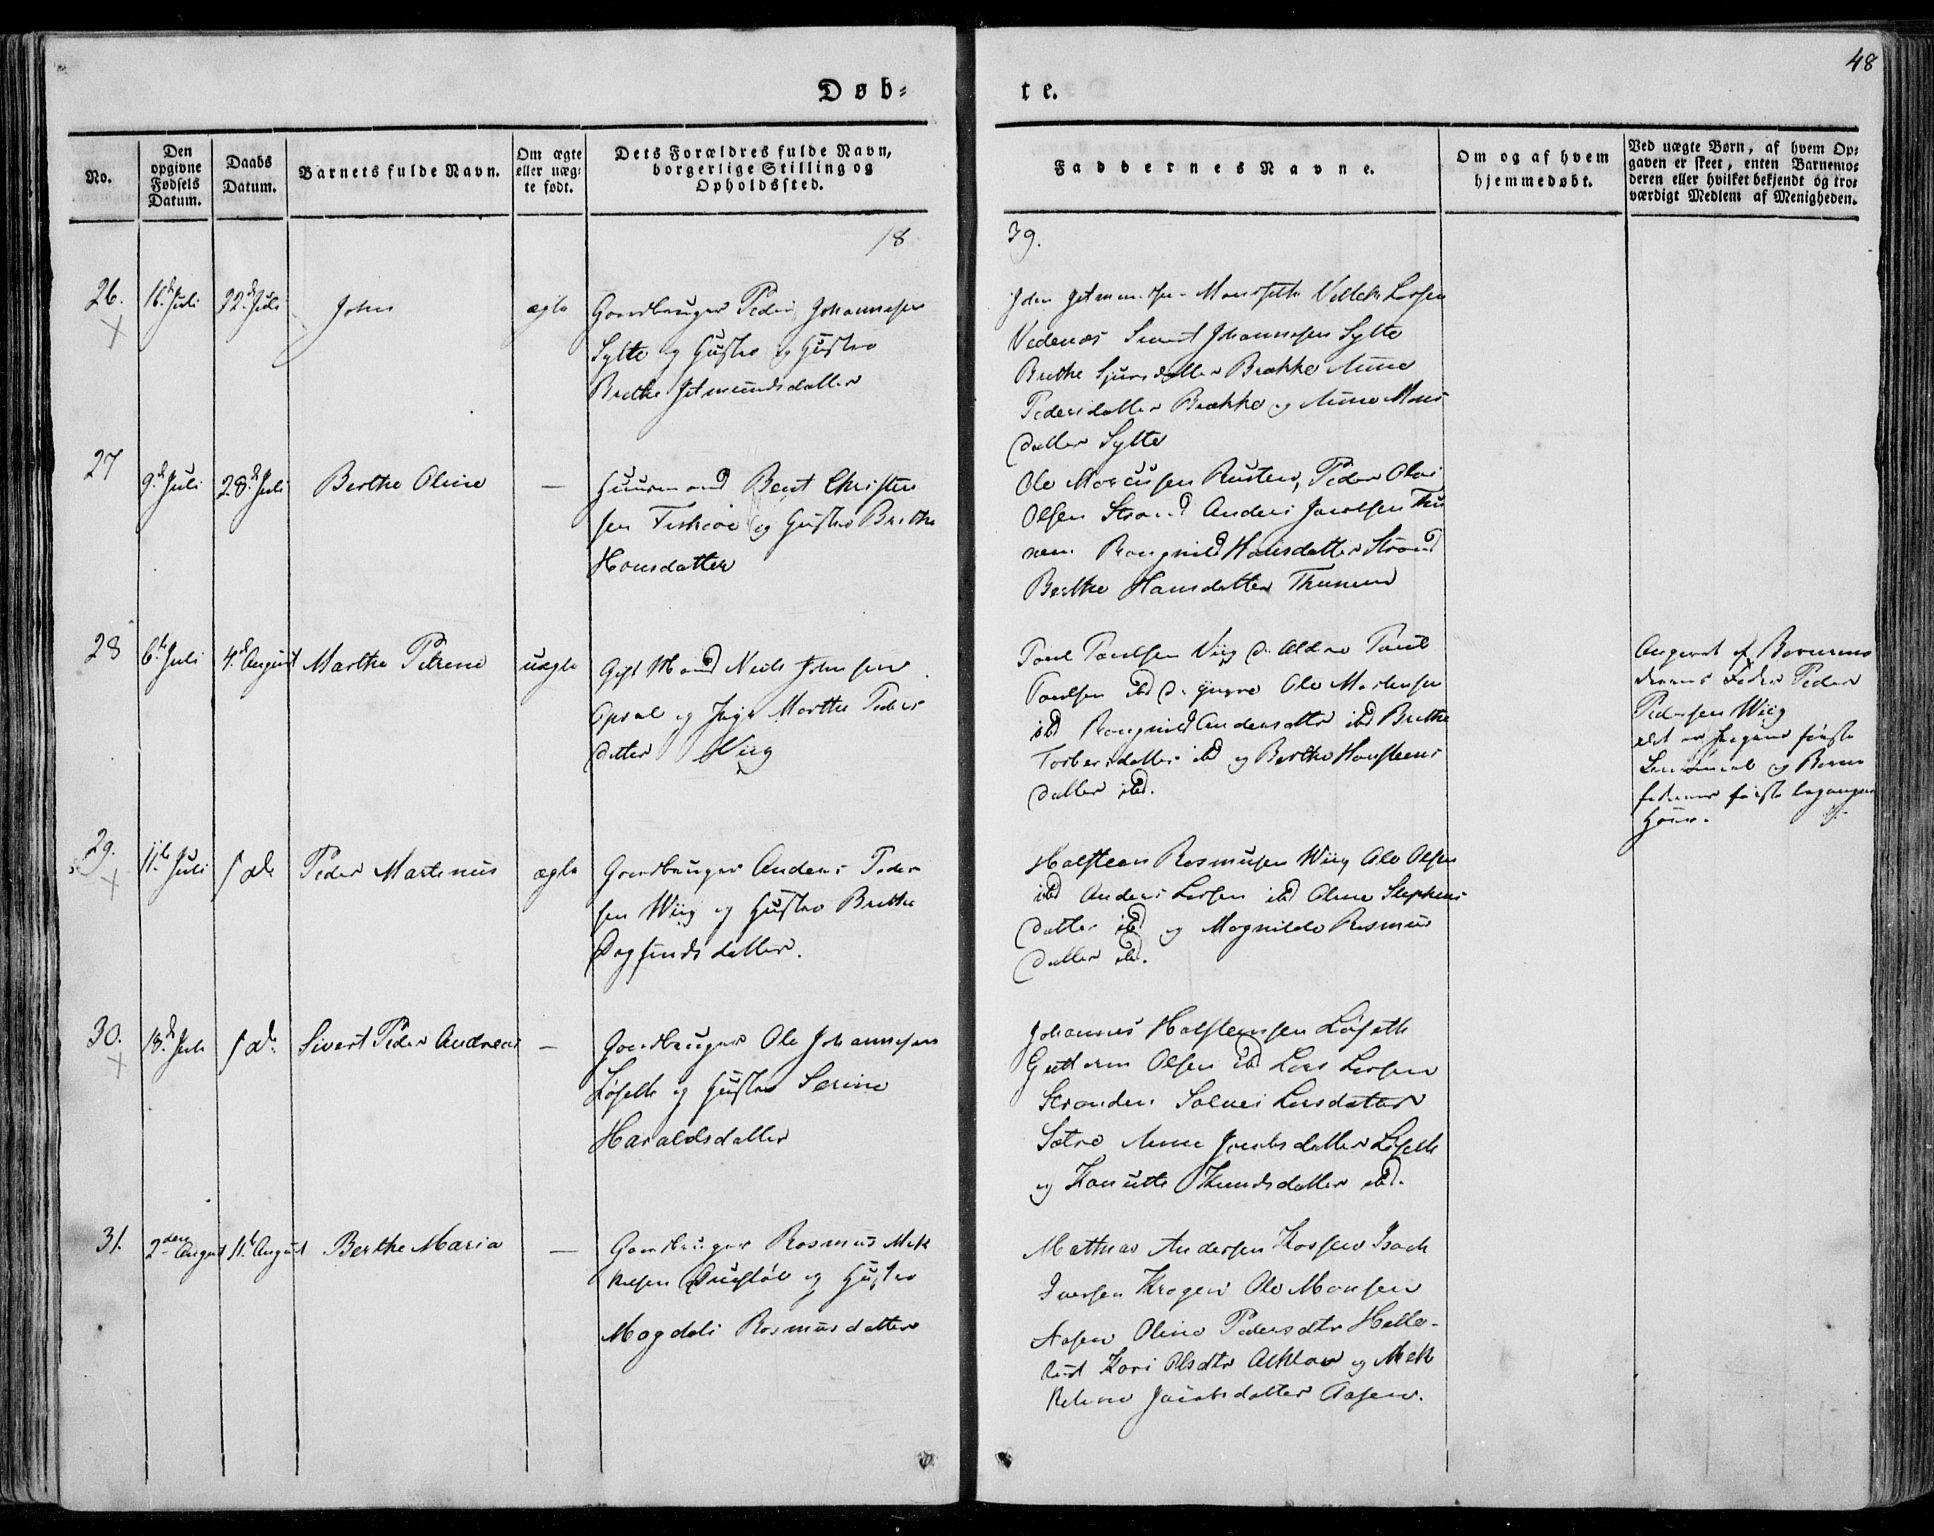 48
Døb-
te.
No.
Den opgivne Fødsels Datum.
Daabs Datum.
Barnets fulde Navn.
Om ægte eller uægte født.
Dets Forældres fulde Navn, borgerlige Stilling og Opholdssted.
Faddernes Navne.
Om og af hvem hjemmedøbt.
Ved uægte Børn, af hvem Opgaven er skeet, enten Barnemoderen eller hvilket bekjendt og troværdigt Medlem af Menigheden.
18
39.
26.
Juli
22d Juli
John
ægte
Gaardbruger Peder Johannesen
Sylte og Hustro og Hustro
Brithe Jetmundsdatter
Sivert Johannesen Sylte
Brithe Sjursdatter Brække Anne
Pedersdatter Brække og Anne Mons
datter Sylte
27
9d Juli
28d Juli
Berthe Oline
—
Huusmand Bent Christen
sen Fiskaae og Hustro Brithe
Hansdatter
Ole Marcussen Rusten, Peder Olai
Olsen Strand Anders Jacobsen Thu
nem Rangnild Hansdatter Strand
Berthe Hansdatter Thunem
28
6te Juli
4d August
Marthe Petrine
uægte
Gift Mand Niels Johnsen
og Pige Marthe Peders
datter Wiig
Poul Poulsen Viig d. Ældre Poul
Poulsen ibd d. yngre Ole Mortensen
ibd Rangnild Andersdttr ibd Brithe
Torbersdatter ibd og Berthe Halsteens
datter ibd.
Angivet af Barnemo
derens Fader Peder
Pedersen Wiig
det er Pigens første
Leiermaal og Barne
faderens første begangne
Hoer.
29.
11te Juli
s. d.
Peder Martinus
ægte
Gaardbruger Anders Peder
sen Wiig og Hustro Brithe
Dagfindsdatter.
Halsteen Rasmusen Wiig Ole Olsen
ibd Anders Larsen ibd Oline Stephens
datter ibd og Magnilde Rasmus
datter ibd.
30.
18d Juli
s. d.
Sivert Peder Andreas
—
Gaardbruger Ole Johannesen
Løseth og Hustro Serine
Haraldsdatter
Johannes Halsteensen Løseth
Guttorm Olsen ibd Lars Larsen
Stranden Solvei Larsdatter
Sætre Anne Jacobsdatter Løseth
og Knudsdatter ibd.
31.
2den August
11te August
Berthe Maria
—
Gaardbruger Rasmus Mik
kelsen og Hustro
Magdeli Rasmusdatter
Mathias Andersen Isach
Iversen Kragen Ole Monsen
Aasen Oline Pedersdtr Helle-
Kari Olsdtr og Mik
keline Jacobsdatter Aasen.